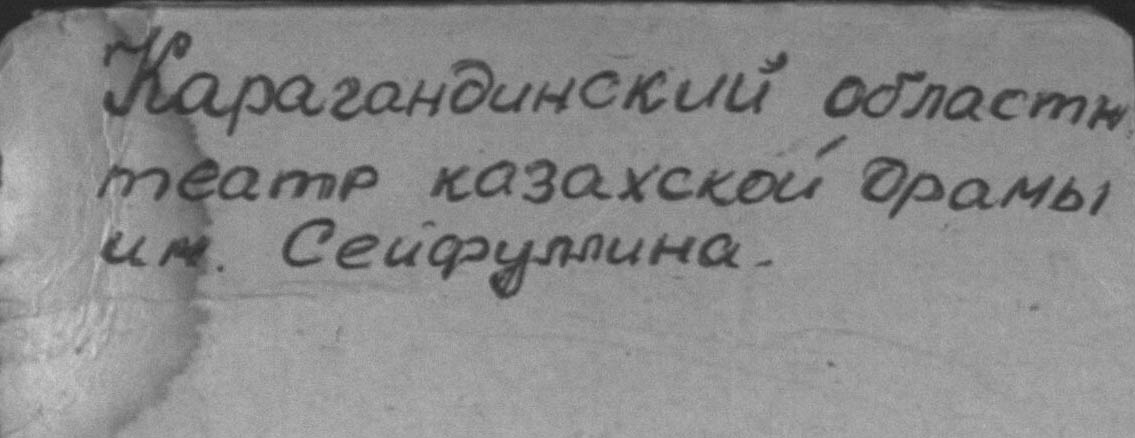 Карагандинский областн.
театр казахской драмы
им. Сейфуллина.